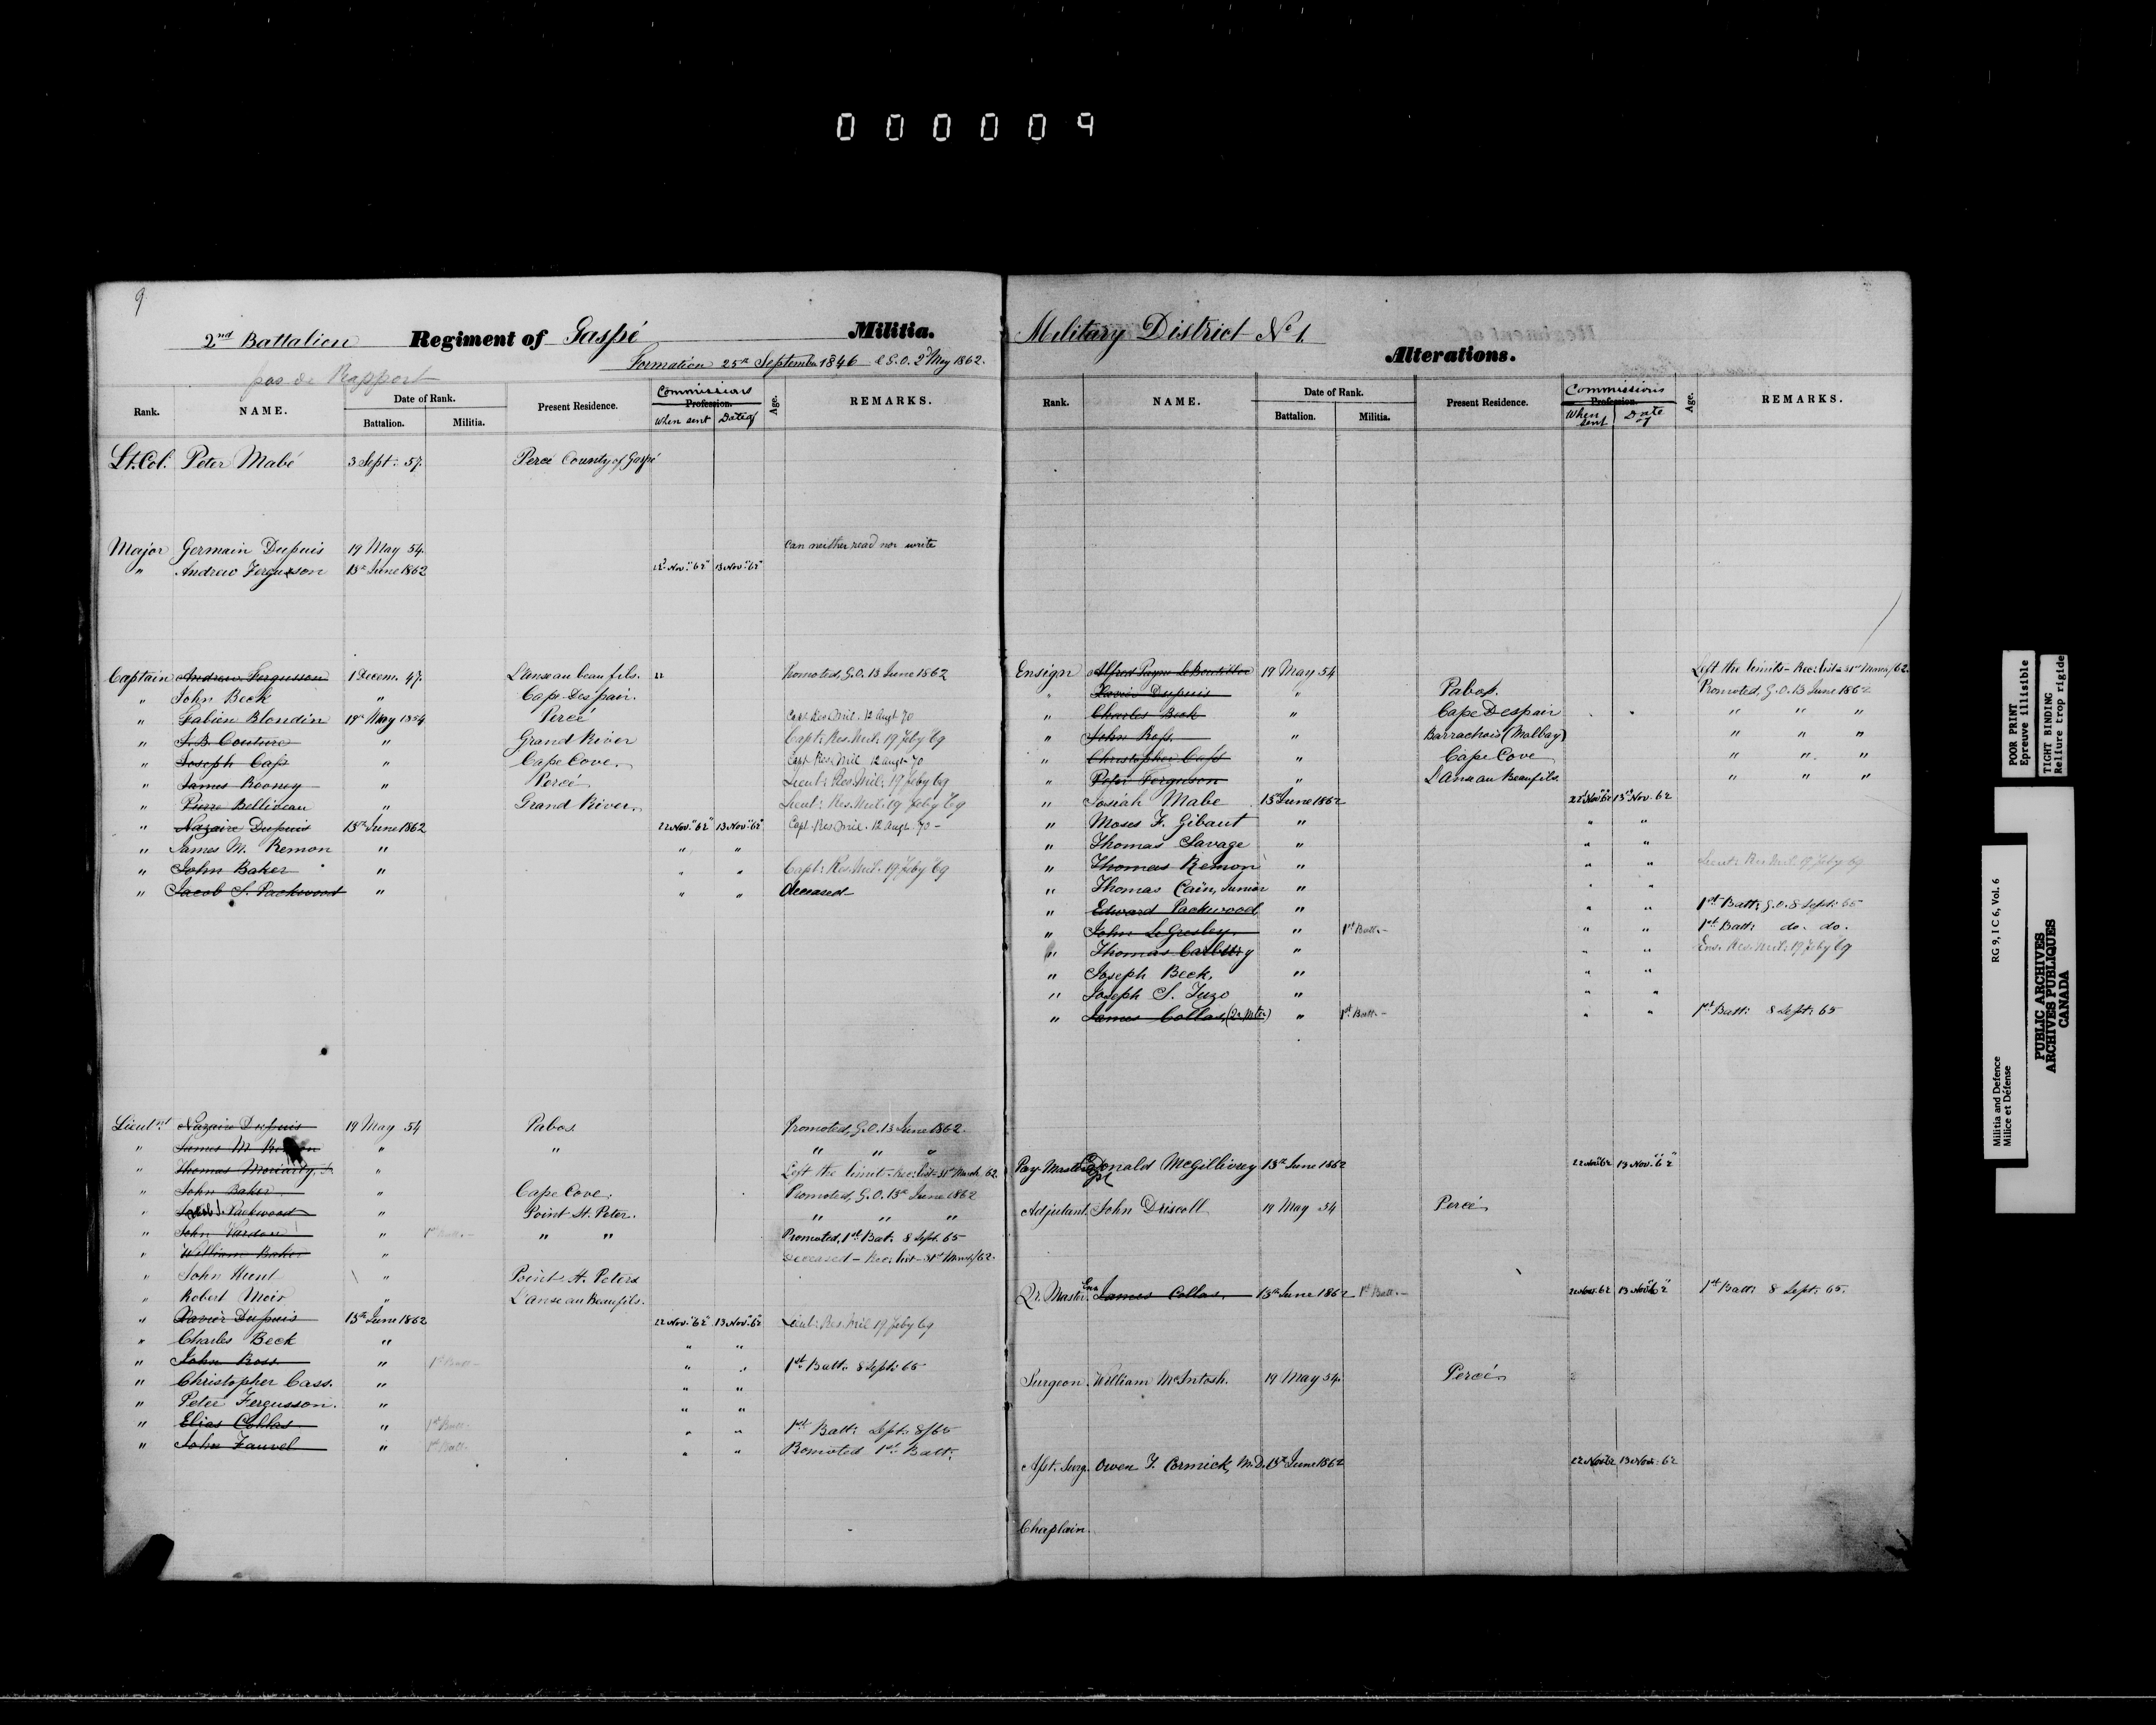 000009
9
2nd Battalion Regiment of Gaspé Militia.
pas de Rapport
Formation 25th September 1846 & G.O. 2d May 1862.
Rank. NAME. Date of Rank. Battalion. Militia. Present Residence. Commissions Profession. When sent Date of Age. REMARKS.
Lt. Col. Peter Mabé 3 Sept. 57. Percé County of Gaspé
Major Germain Dupuis 19 May 54. Can neither read nor write
" Andrew Fergusson 13th June 1862 22 Nov. "62" 13 Nov. "62"
Captain Andrew Fergusson 1 Decem. 47. L'Anse au beau fils. Promoted, G.O. 13 June 1862
" John Beck " Cape Despair.
" Fabien Blondin 19th May 1854 Percé Capt. Res. Mil. 12 Augt. 70
" J. B. Couture " Grand River Capt: Res. Mil: 19 Feby 69
" Joseph Cass " Cape Cove. Capt. Res. Mil. 12 Augt 70
" James Rooney " Percé Lieut: Res. Mil: 19 Feby 69
" Pierre Belliveau " Grand River Lieut: Res. Mil: 19 Feby 69
" Nazaire Dupuis 13th June 1862 22 Nov. "62" 13 Nov. "62" Capt. Res. Mil. 12 Augt. 70 -
" James M. Remon " " "
" John Baker " " " Capt: Res. Mil. 19 Feby 69
" Jacob S. Packwood " " " deceased
Lieutnt Nazaire Dupuis 19 May 54 Pabos Promoted, G.O. 13 June 1862.
" James M Remon " " " " "
" Thomas Moriarty, Jr " Left the limits - Rec: list - 31st March 62.
" John Baker " Cape Cove. Promoted, G.O. 13th June 1862
" Jacob S. Packwood " Point St. Peter. " " "
" John Vardon " 1st Batt. - " " Promoted, 1st Bat: 8 Sept. 65
" William Baker " Deceased - Rec: list - 31st March/62.
" John Hunt " Point St. Peters
" Robert Moir " L'anse au Beaufils.
" Xavier Dupuis 13th June 1862 22 Nov. "62" 13 Nov. "62" Lieut: Res. Mil 19 Feby 69
" Charles Beck " " "
" John Ross " 1st Batt - " " 1st Batt. 8 Sept: 65
" Christopher Cass. " " "
" Peter Fergusson. " " "
" Elias Collas " 1st Batt. " " 1st Batt: Sept. 8/65
" John Fauvel " 1st Batt. " " Promoted 1st Batt:
Military District No 1.
Alterations.
Rank. NAME. Date of Rank. Battalion. Militia. Present Residence. Commissions Profession. When sent Date of Age. REMARKS.
Ensign Alfred Payne 19 May 54 Left the limits - Rec: list - 31st March/62.
" Xavier Dupuis " Pabos. Promoted, G.O. 13 June 1862
" Charles Beck " Cape Despair " " "
" John Ross. " Barrachois (Malbay) " " "
" Christopher Cass " Cape Cove " " "
" Peter Fergusson " L'Anse au Beaufils. " " "
" Josiah Mabe 13th June 1862 22 Nov 62 13 Nov. 62
" Moses F. Gibaut " " "
" Thomas Savage " " "
" Thomas Remon " " " Lieut: Res. Mil. 19 Feby 69
" Thomas Cain, Junior " " "
" Edward Packwood " " " 1st Batt: G.O. 8 Sept: 65
" John Le Gresley. " 1st Batt. - " " 1st Batt: do. do.
" Thomas Carbery " " " Ens. Res. Mil: 19 Feby 69
" Joseph Beck. " " "
" Joseph S. Tuzo " " "
" James Collas, (Qr. Mster) " 1st Batt. - " " 1st Batt: 8 Sept: 65
Pay Master Capt Donald McGillivray 13th June 1862 22 Nov 62 13 Nov. "62"
Adjutant. John Driscoll 19 May 54 Percé
Qr. Master. Ens James Collas. 13th June 1862 1st Batt. - 22 Nov. 62 13 Nov 62 1st Batt: 8 Sept. 65.
Surgeon. William McIntosh. 19 May 54. Percé
Asst. Surg. Owen F. Cormick, M.D. 13th June 1862 22 Nov 62 13 Nov. 62
Chaplain.
POOR PRINT
Epreuve illisible
TIGHT BINDING
Reliure trop rigide
Militia and Defence RG 9, I C 6, Vol. 6
Milice et Défense
PUBLIC ARCHIVES
ARCHIVES PUBLIQUES
CANADA